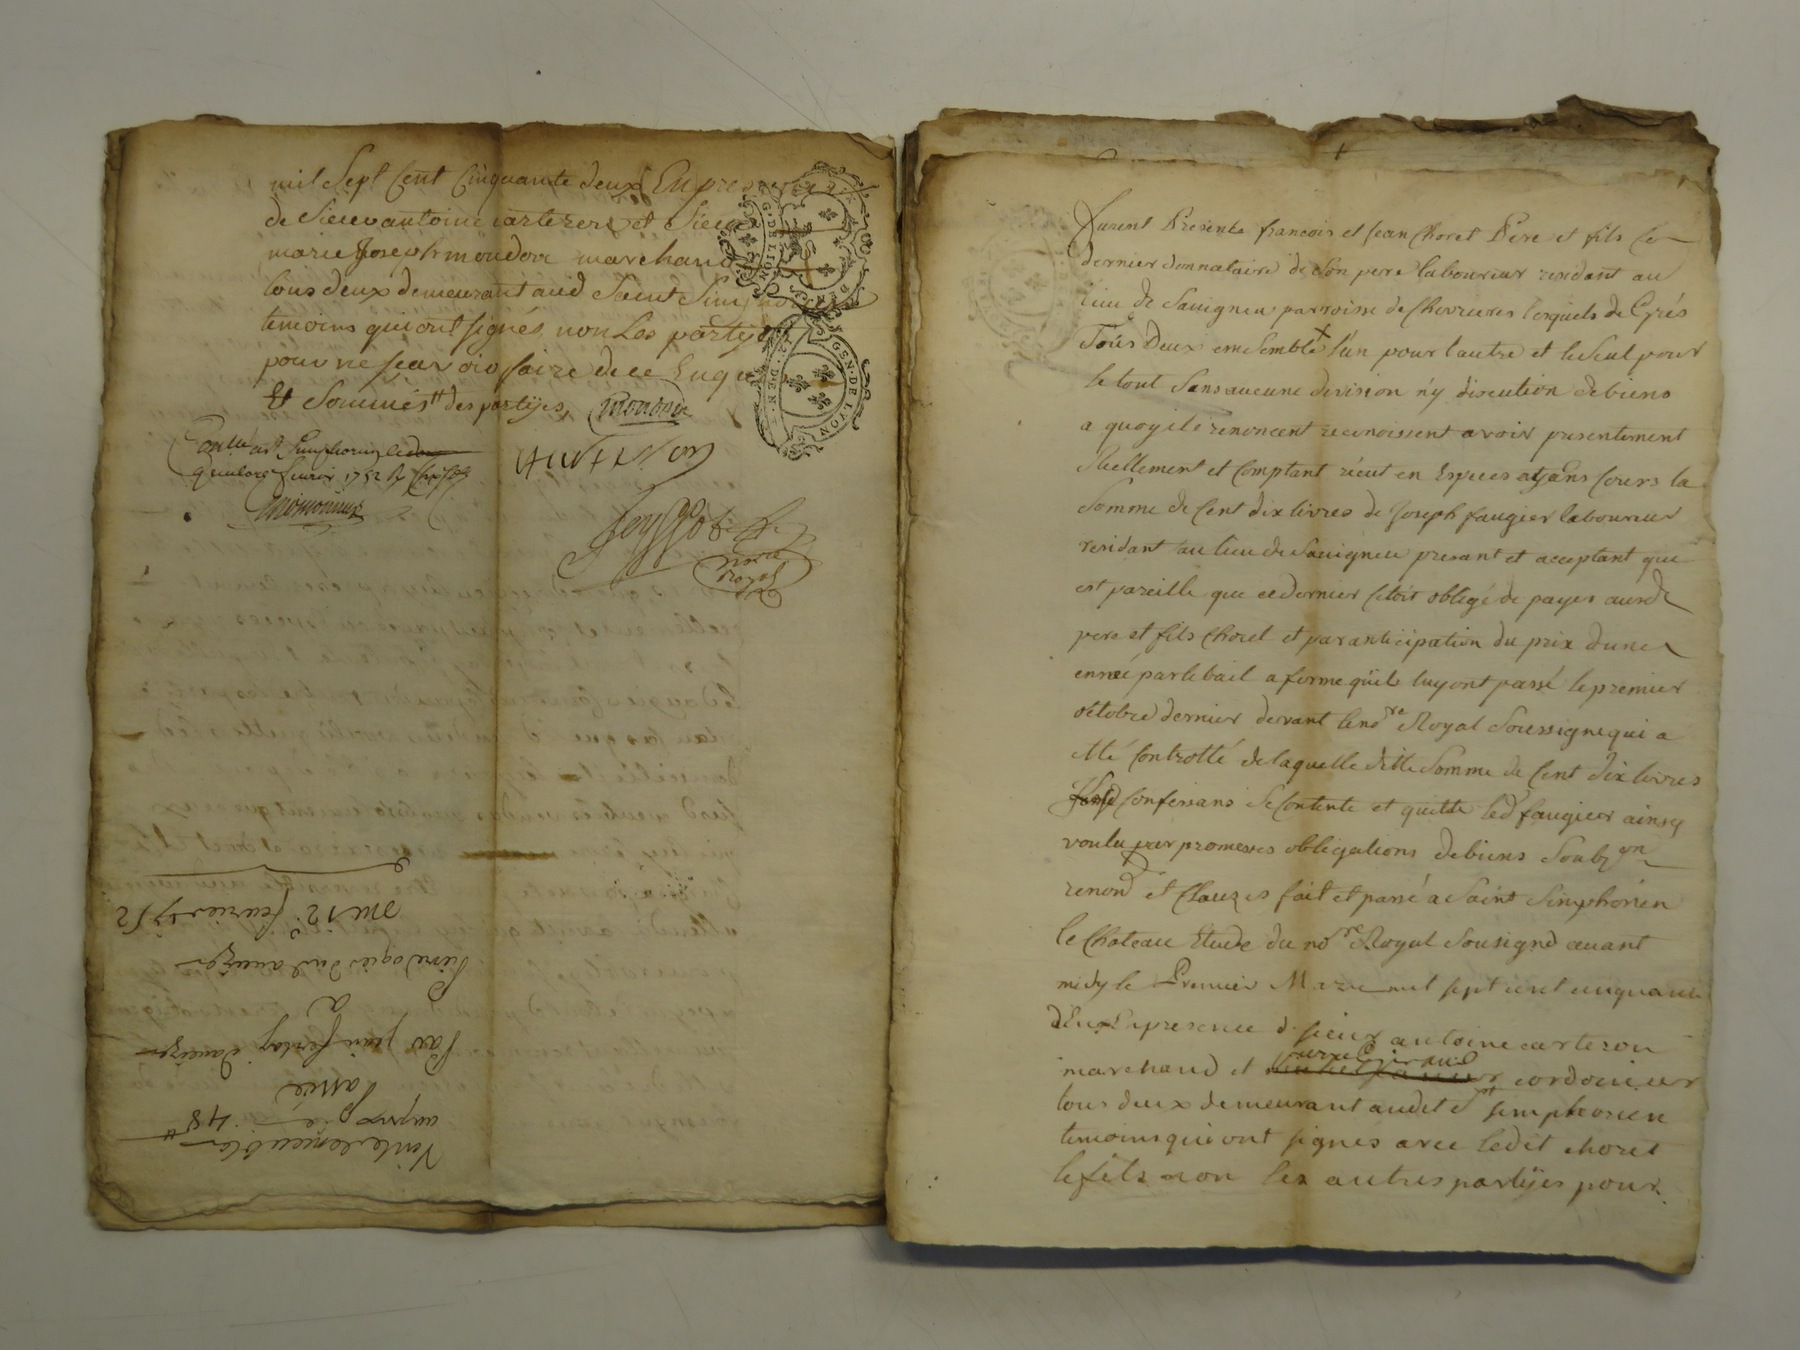 mil Sept Cent Cinquante deux En presence
de Sieur antoine carteron et Sieur
marie Joseph moudon marchand
tous deux demeurant aud Saint Simphorien
temoins qui ont signés non Les partÿes
pour ne scavoir faire de ce Enquis
Et Sommés des partÿes,
moudon
GEN. DE LYON
Vente de meubles
au prix de 48
passée
Par jean ferlay daveizes
a
Pierre ogier dud aveize
Du 12 fevrier 1752
furent Presents francois et jean Choret Pere et fils Ce
dernier donnataire de Son pere laboureur residant au
lieu de Sauigneu parroisse de Chevrieres lesquels de Grés
Tous Deux ensemble l'un pour l'autre et le Seul pour
le tout Sans aucune division n'y discution de biens
a quoy ils renoncent reconoissent avoir presentement
Reellement et Comptant récut en Especes ayans Cours la
Somme de Cent dix livres de Joseph faugier laboureur
residant au lieu de Sauigneu present et acceptant que
est pareille que ce dernier s'étoit obligé de payer ausd
pere et fils Choret et par anticipation du prix d'une
année par le bail a ferme qu'ils luy ont passé le premier
octobre dernier devant le no.re Royal Soussigne qui a
été Controllé de laquelle ditte Somme de Cent dix livres
confessans Se Contente et quitte led faugier ainsy
voulu par promesses obligations de biens Soub.on
renon.d et Clauzes fait et passé a Saint Simphorien
le Chateau Etude du no.re Royal Sousigné avant
midy le Premier Mars mil sept cent cinquante
deux En presence de sieur antoine carteron
marchand et pierre Giraud cordonier
tous deux demeurant audit St simphorien
temoins qui ont signes avec ledit choret
le fils non les autres partÿes pour